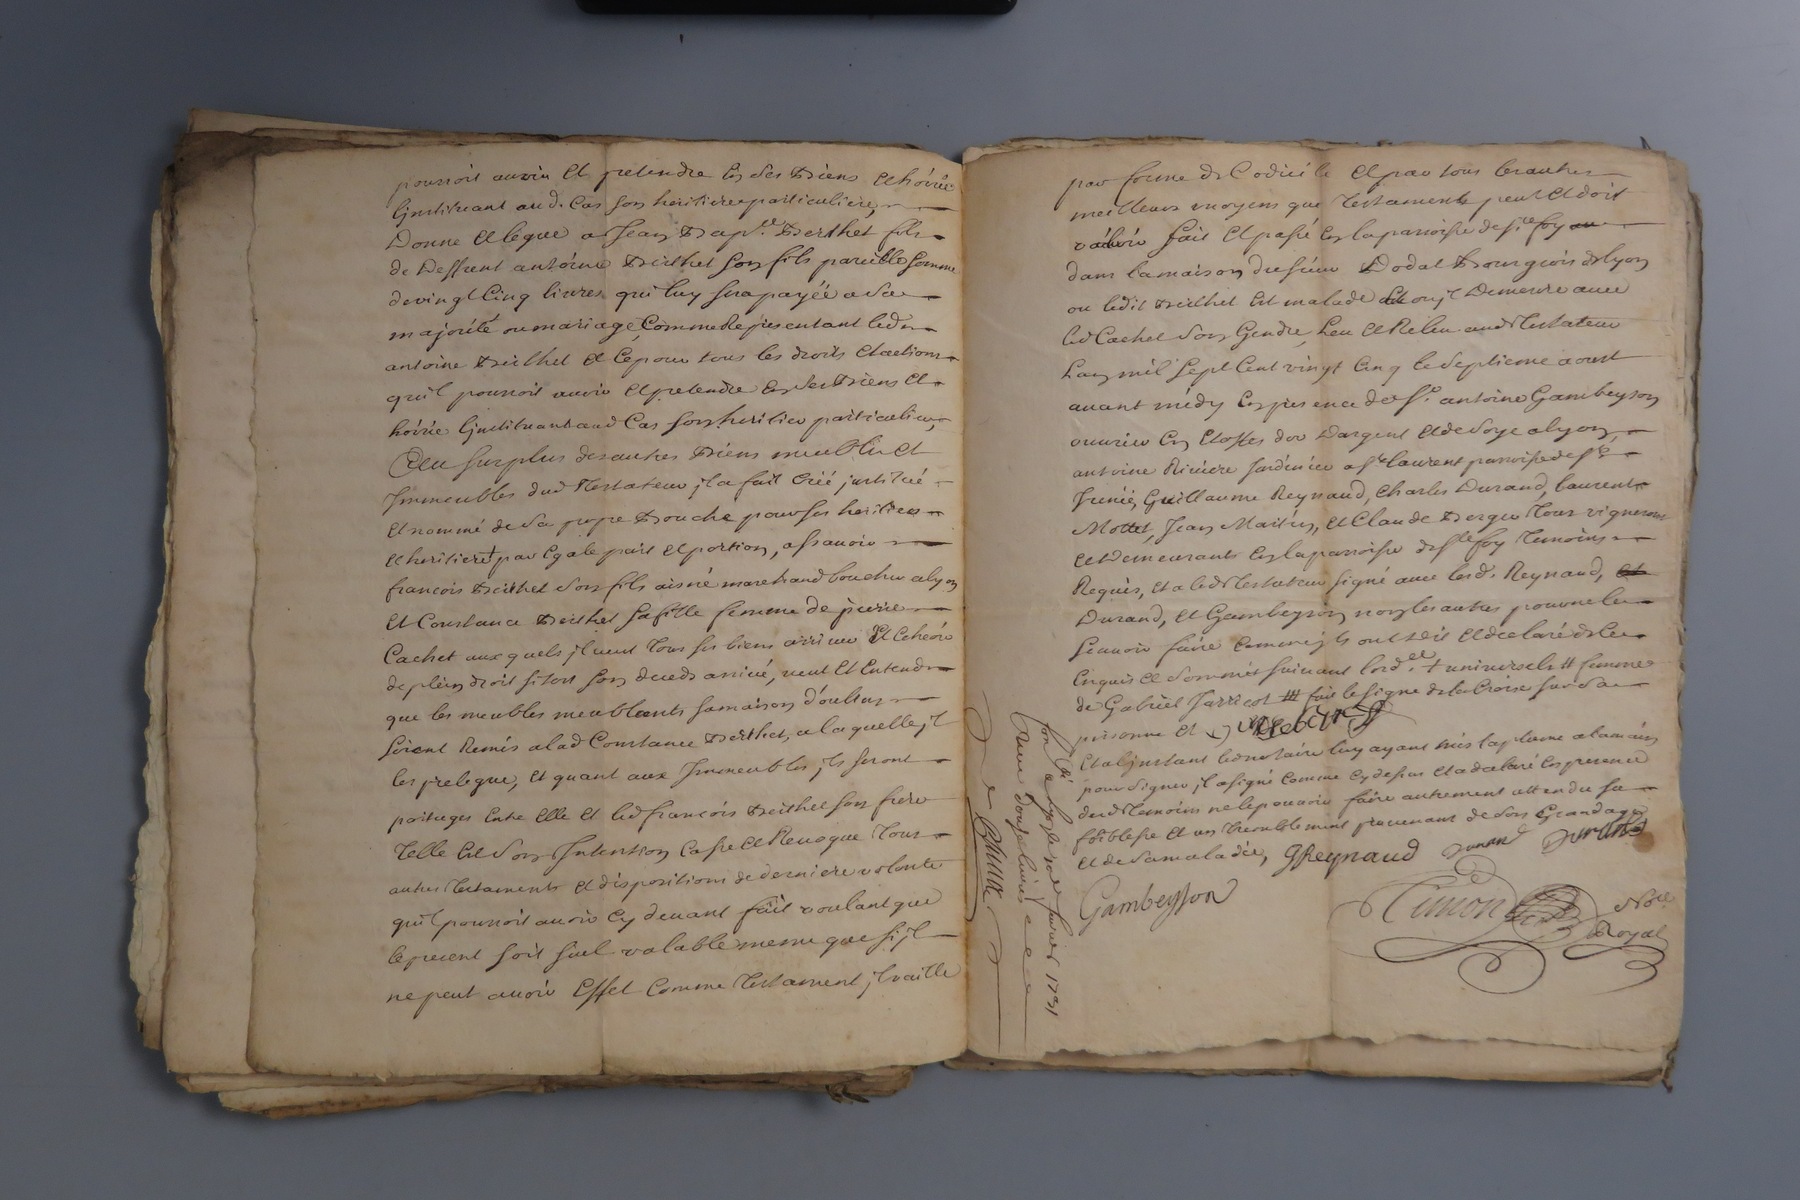 pourroit avoir et pretendre en ses biens et hoirie
Instituant aud. cas son heritiere particuliere,
Donne et legue a Jean Bapt.e Berthet fils
de deffunt antoine Berthet son fils pareille somme
de vingt cinq livres qui luy sera payée a sa
majorité ou mariage, comme Representant led.
antoine Berthet et ce pour tous les droits et actions
qu'il pourroit avoir et pretendre en ses biens et
hoirie Instituant aud cas son heritier particulier,
Et au surplus des autres biens meubles et
Immeubles dud Testateur il a fait créé institué
et nommé de sa propre Bouche pour ses heritiers
et heritiere + par Egale part et portion, assavoir
françois Berthet son fils aisné marchand boucher a lyon
et Constance Berthet sa fille femme de pierre
Cachet aux quels il veut tous ses biens arriver Et echeoir
de plein droit sitost son deceds arrivé, veut et entend
que les meubles meublants sa maison d'oulins
soient Remis a lad Constance Berthet, a laquelle il
les prelegue, et quant aux Immeubles ils seront
partagés entre elle et led françois Berthet son frere
telle est son Intention Casse et Revoque tous
autres testaments et dispositions de derniere volonté
qu'il pourroit avoir cy devant fait voulant que
le present soit seul valable mesme que s'il
ne peut avoir Effet comme testament il vaille
par forme de Codicile et par tous les autres
meilleurs moyens que Testament peut et doit
valoir fait et passé en la parroisse de S.te foy
dans la maison du sieur Dodat Bourgeois de lyon
ou ledit Berthet est malade et ou il Demeure avec
led Cachet son Gendre, Leu et Releu aud Testateur
L'an mil sept cent vingt cinq le septieme aoust
avant midy en presence de S.r antoine Gambeyson
ouvrier en Etoffes d'or D'argent et de soye a lyon,
antoine Riviere Jardinier a S.t laurent parroisse de S.t
Irenée, Guillaume Reynaud, Charles Durand, laurent
Mottet, Jean Martin, et Claude Berger tous vignerons
et demeurants en la parroisse de S.te foy temoins
Requis, et a led Testateur signé avec lesd. Reynaud, et
Durand, et Gambeyson non les autres pour ne le
scavoir faire comme ils ont dit et declaré de ce
Enquis et sommés suivant l'ord.ce + universels # femme
de Gabriel Jarricot ### fait le signe de la Croix sur sa
personne et
Et a l'instant led notaire luy ayant mis la plume a la main
pour signer, il a signé comme cy dessus et a declaré en presence
desd temoins ne le pouvoir faire autrement attendu sa
foiblesse et un tremblement provenant de son Grand age
et de sa maladie, GReynaud Durand
Gambeysson
Simon No.re
Royal
Con.lé a lyon le fevrier 1731
Receu douze livres